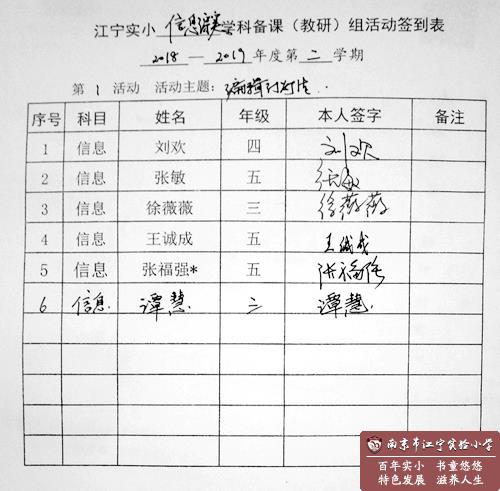 江宁实小 信息 学科备课（教研）组活动签到表
2018 — 2019 年度第 二 学期
第 1 活动 活动主题：编辑
序号 科目 姓名 年级 本人签字 备注
1 信息 刘欢 四 刘欢
2 信息 张敏 五 张敏
3 信息 徐薇薇 三 徐薇薇
4 信息 王诚成 五 王诚成
5 信息 张福强* 五 张福强
6 信息 谭慧 三 谭慧
南京市江宁实验小学
百年实小 书童悠悠
特色发展 滋养人生